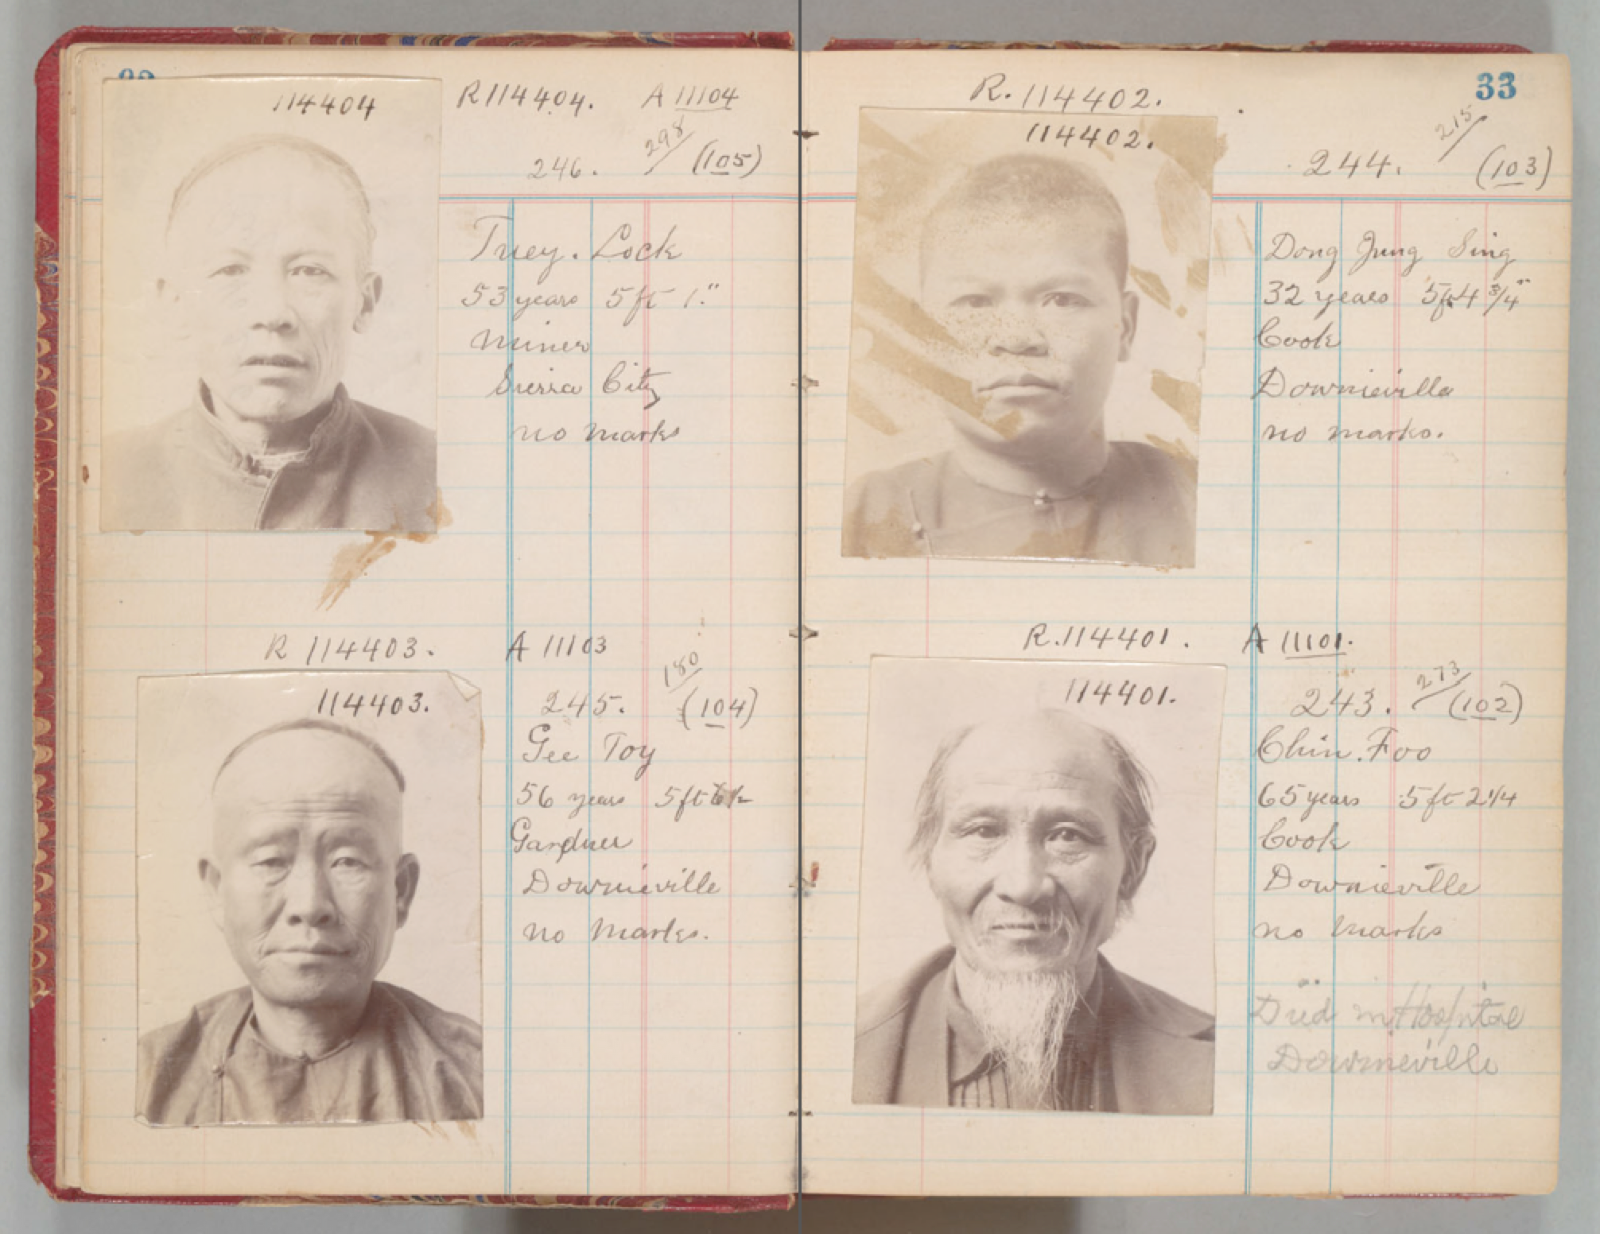 114404
R 114404. A 11104
298
246. (105)
Tuey. Lock
53 years 5 ft 1."
Miner
Sierra City
no marks
R 114403. A 11103
114403.
180
245. (104)
Gee Toy
56 years 5 ft
Gardner
Downieville
no marks.
33
R. 114402.
114402.
215
244. (103)
Dong Jung Sing
32 years 5 ft 4 3/4"
Cook
Downieville
no marks.
R. 114401. A 11101.
114401.
273
243. (102)
Chin. Foo
65 years 5 ft 2 1/4
Cook
Downieville
no marks
Died in Hospital
Downieville